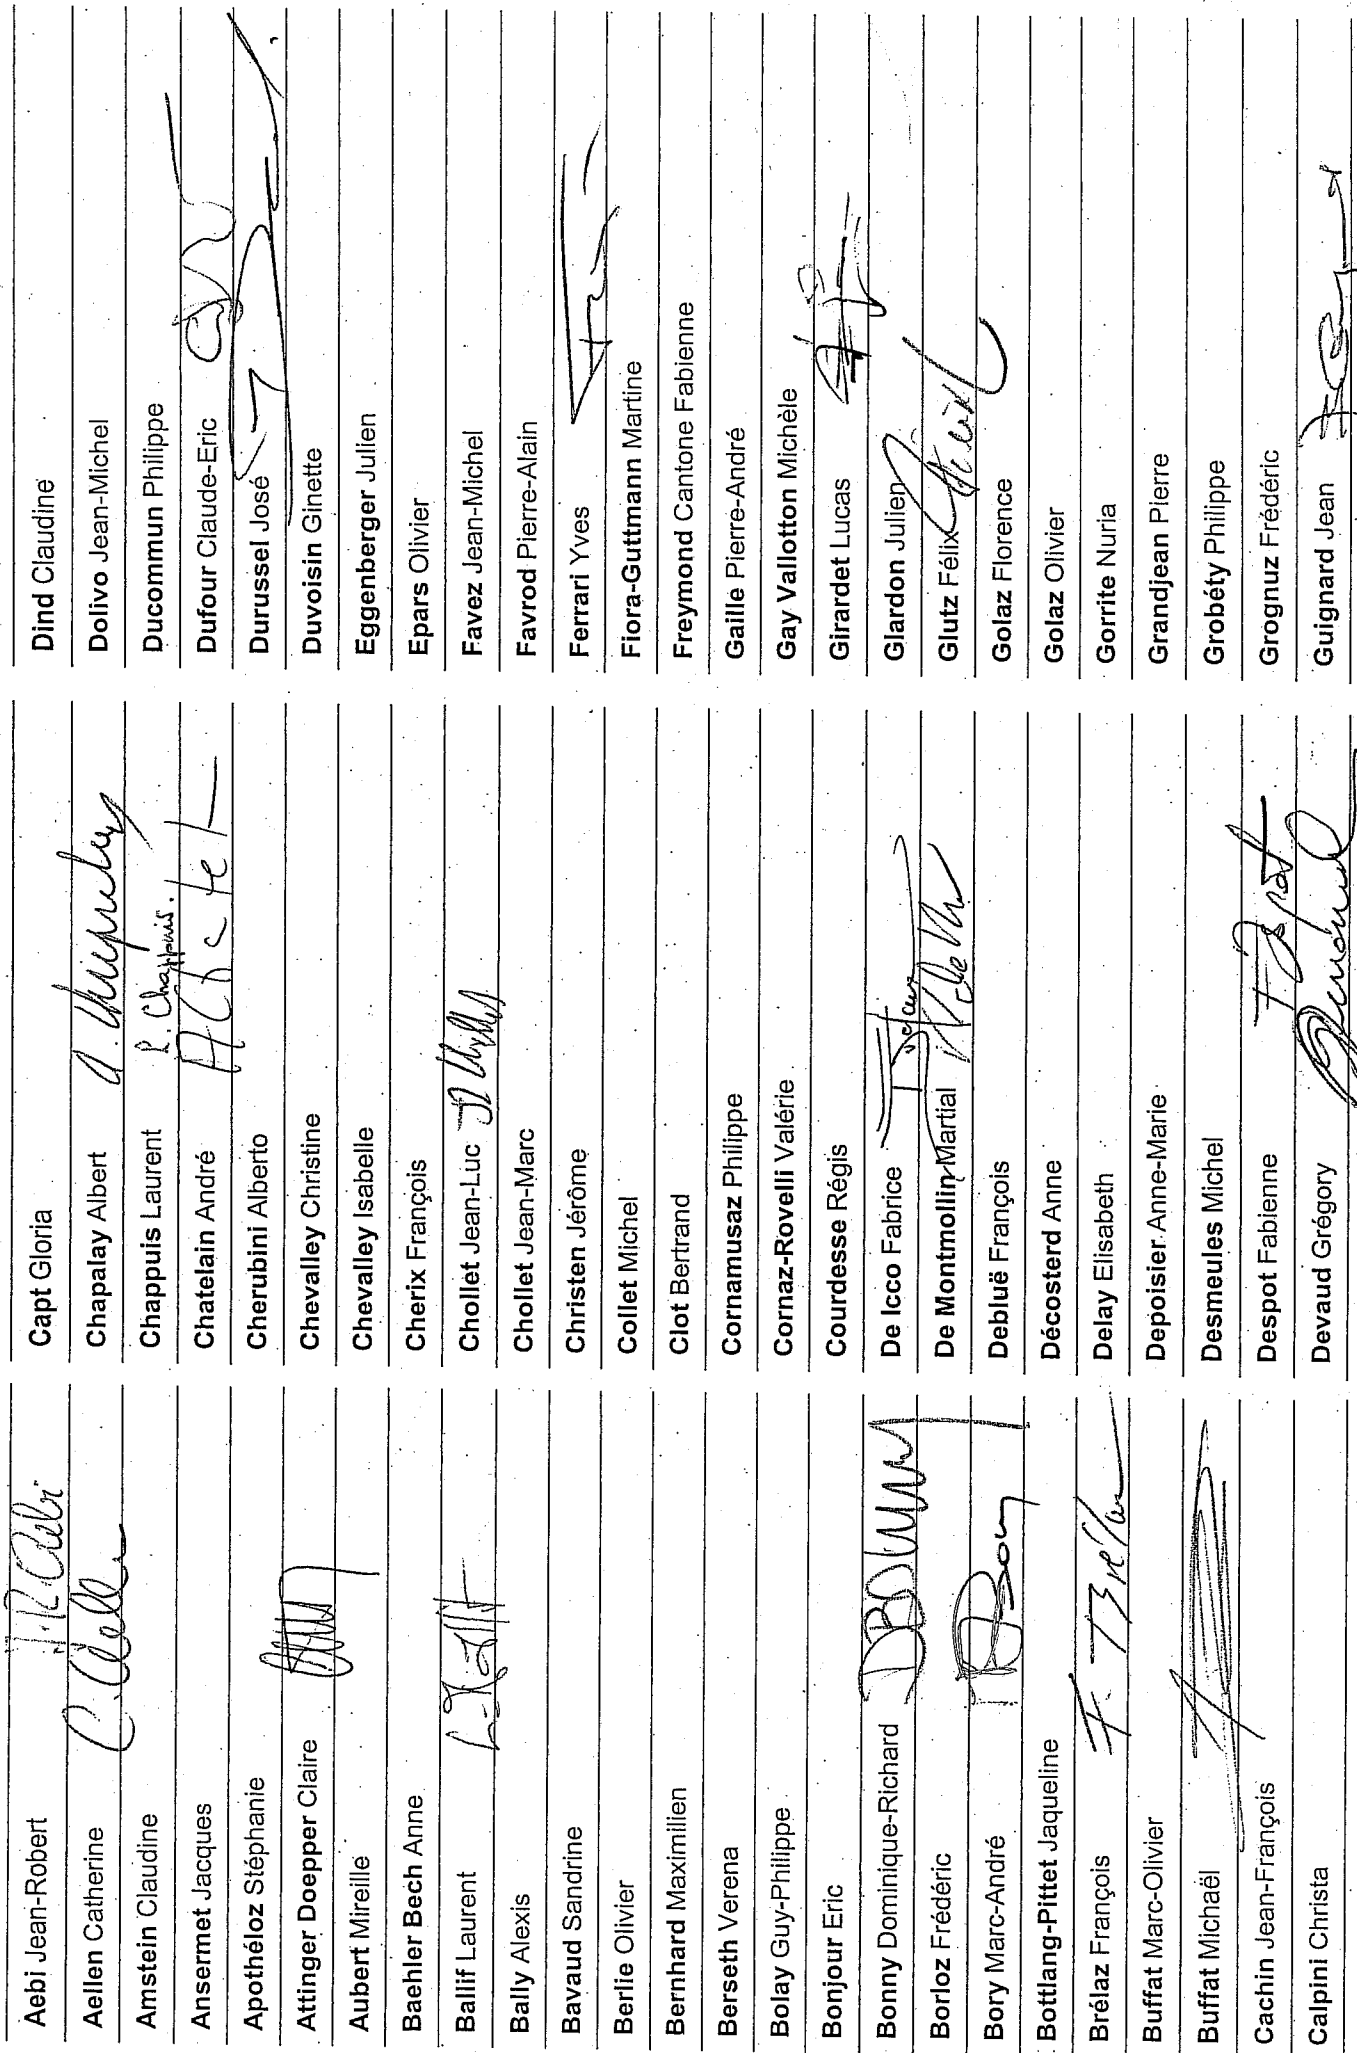 Aebi Jean-Robert J-R Aebi
Aellen Catherine C. Aellen
Amstein Claudine
Ansermet Jacques
Apothéloz Stéphanie
Attinger Doepper Claire
Aubert Mireille
Baehler Bech Anne
Ballif Laurent
Bally Alexis
Bavaud Sandrine
Berlie Olivier
Bernhard Maximilien
Berseth Verena
Bolay Guy-Philippe
Bonjour Eric
Bonny Dominique-Richard
Borloz Frédéric
Bory Marc-André
Bottlang-Pittet Jaqueline
Brélaz François F. Brélaz
Buffat Marc-Olivier
Buffat Michaël
Cachin Jean-François
Calpini Christa
Capt Gloria
Chapalay Albert
Chappuis Laurent L. Chappuis.
Chatelain André
Cherubini Alberto
Chevalley Christine
Chevalley Isabelle
Cherix François
Chollet Jean-Luc
Chollet Jean-Marc
Christen Jérôme
Collet Michel
Clot Bertrand
Cornamusaz Philippe
Cornaz-Rovelli Valérie
Courdesse Régis
De Icco Fabrice
De Montmollin Martial
Debluë François
Décosterd Anne
Delay Elisabeth
Depoisier Anne-Marie
Desmeules Michel
Despot Fabienne
Devaud Grégory
Dind Claudine
Dolivo Jean-Michel
Ducommun Philippe
Dufour Claude-Eric
Durussel José
Duvoisin Ginette
Eggenberger Julien
Epars Olivier
Favez Jean-Michel
Favrod Pierre-Alain
Ferrari Yves
Fiora-Guttmann Martine
Freymond Cantone Fabienne
Gaille Pierre-André
Gay Vallotton Michèle
Girardet Lucas
Glardon Julien
Glutz Félix
Golaz Florence
Golaz Olivier
Gorrite Nuria
Grandjean Pierre
Grobéty Philippe
Grognuz Frédéric
Guignard Jean